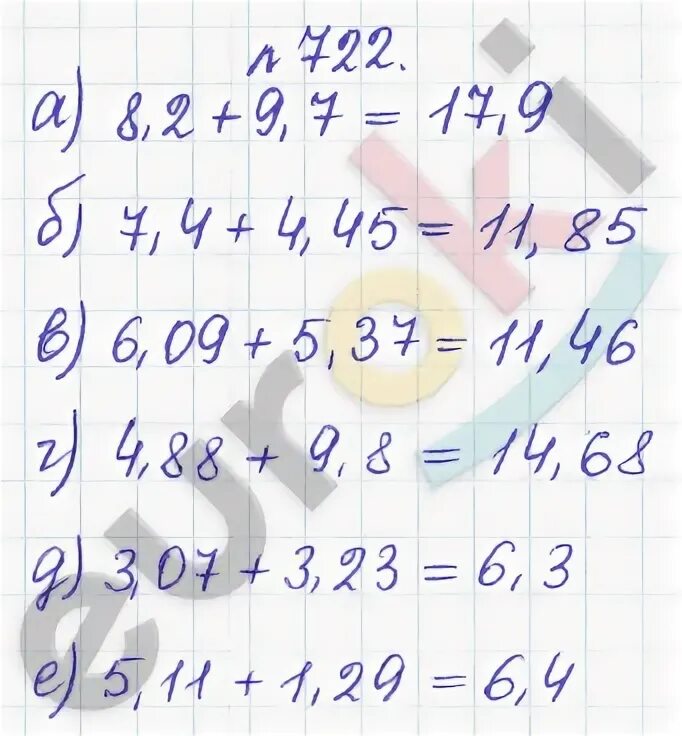 № 722.
а) 8,2 + 9,7 = 17,9
б) 7,4 + 4,45 = 11,85
в) 6,09 + 5,37 = 11,46
г) 4,88 + 9,8 = 14,68
д) 3,07 + 3,23 = 6,3
е) 5,11 + 1,29 = 6,4
euroki